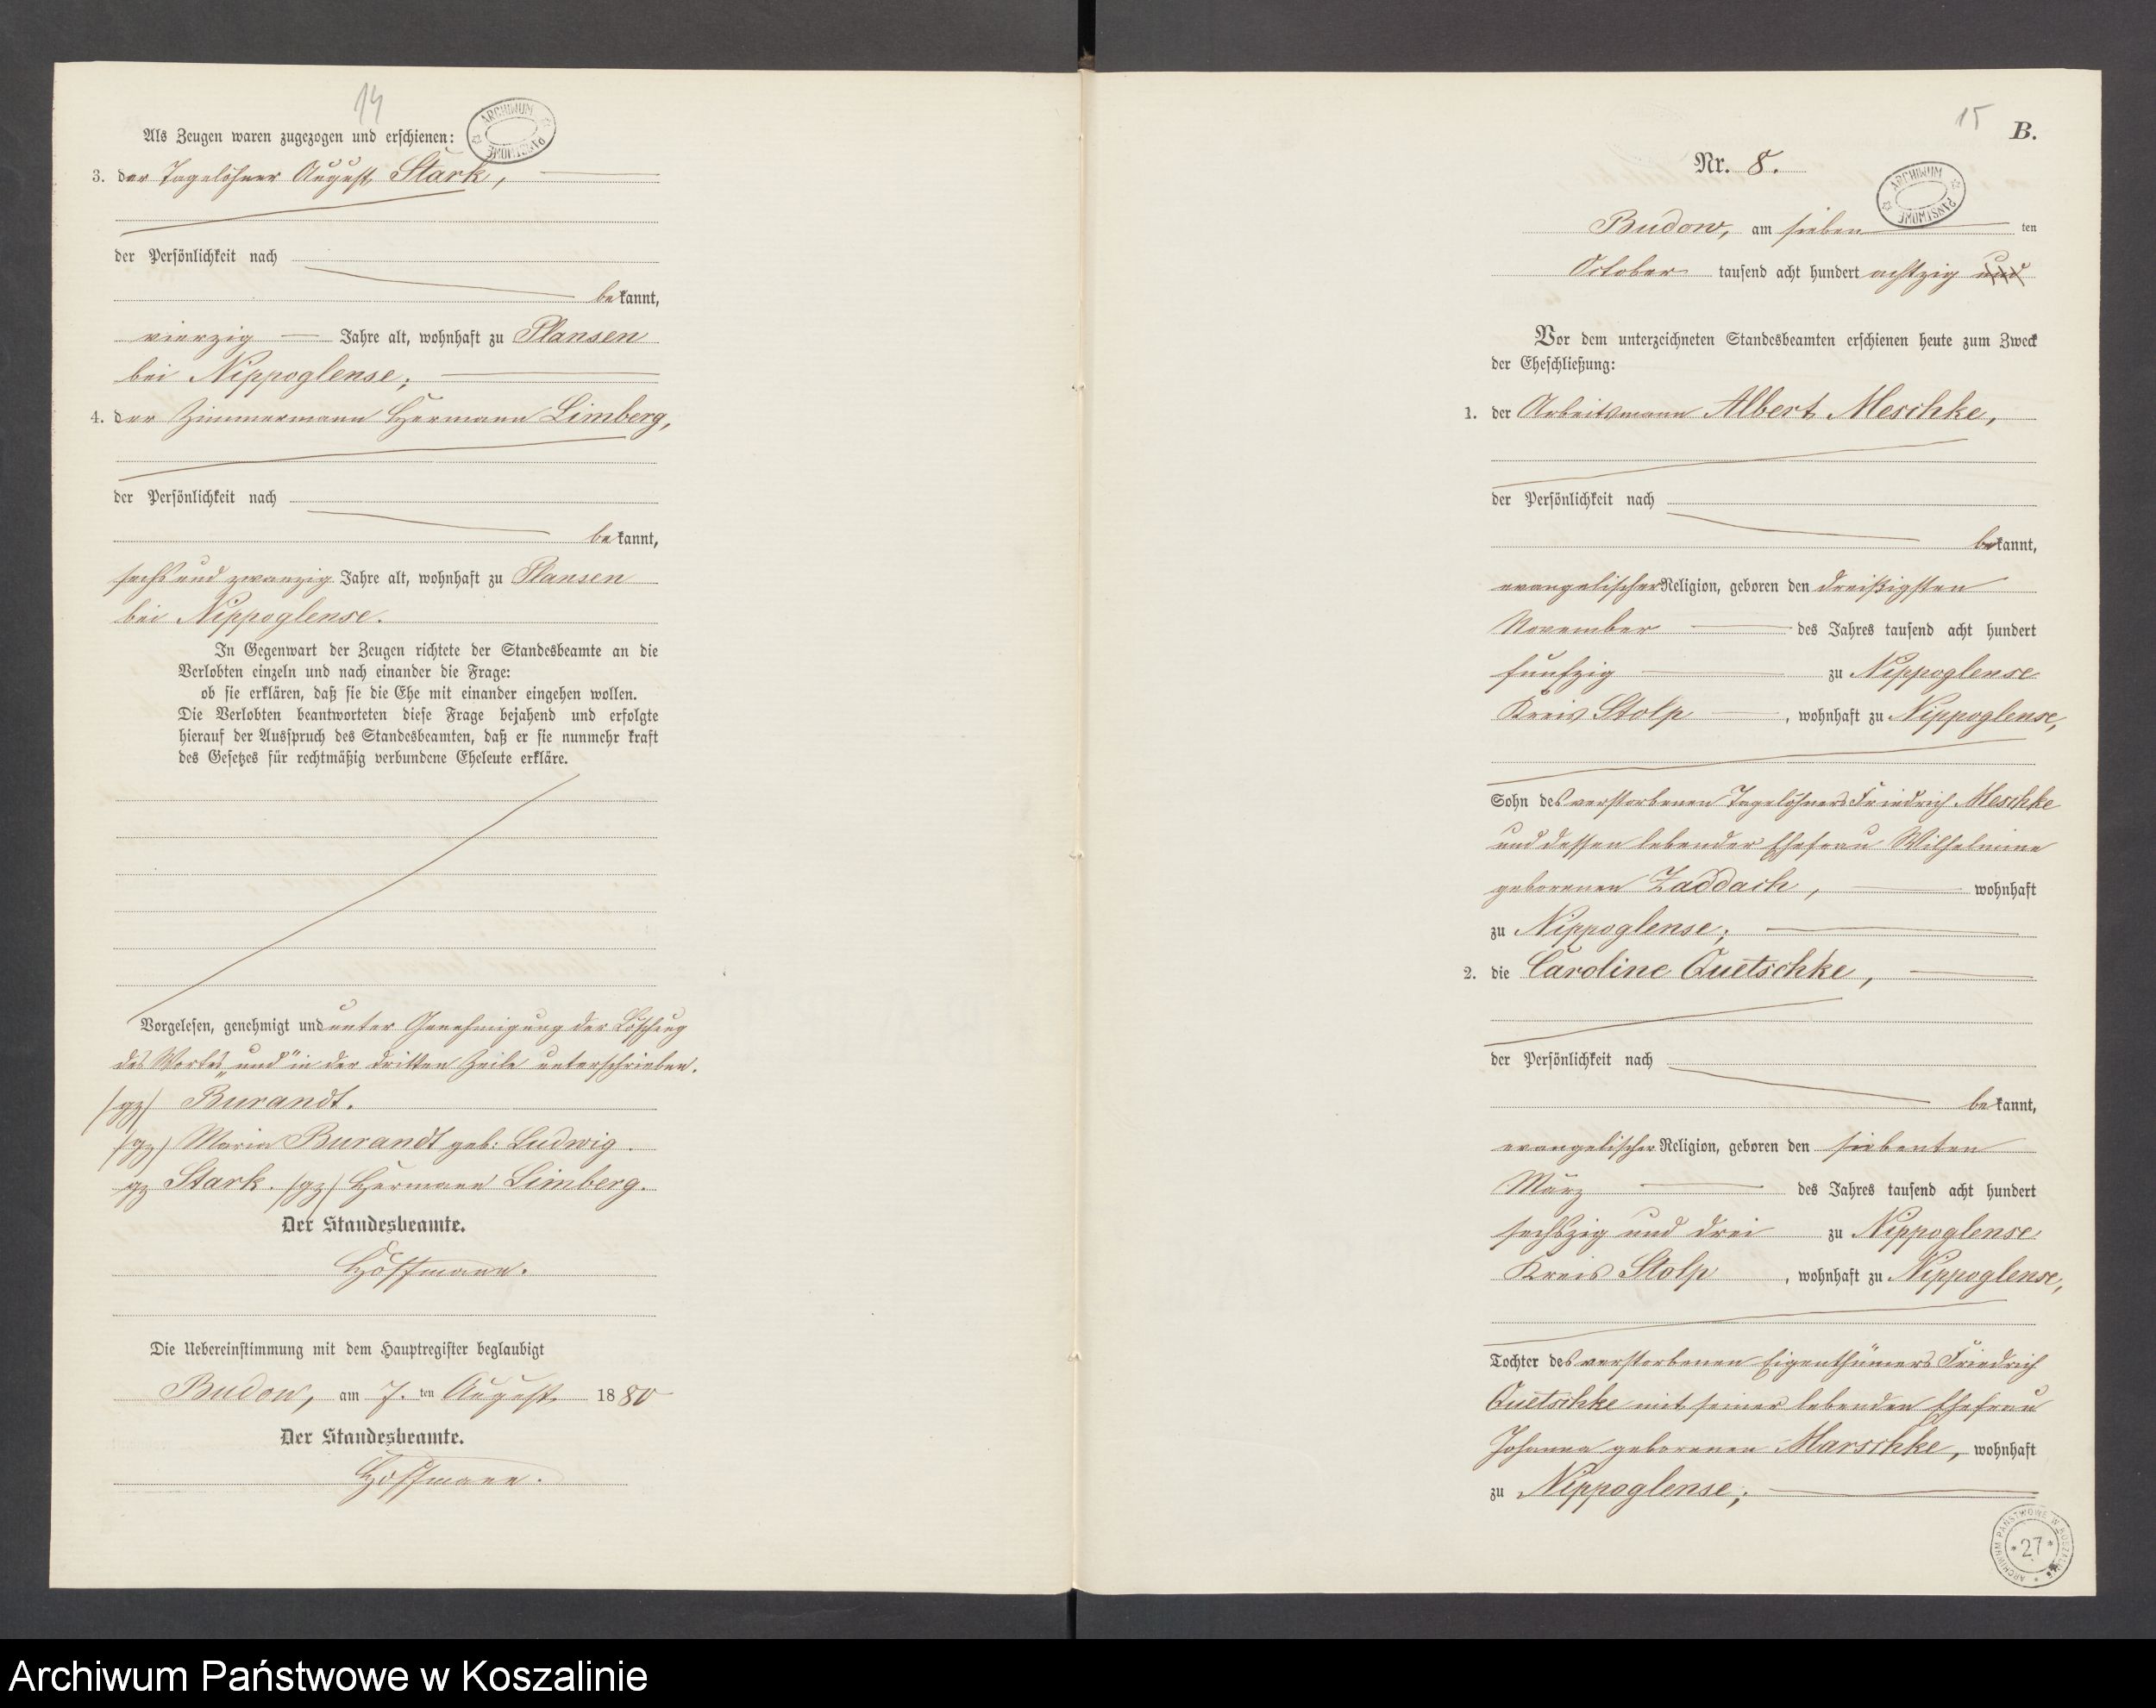 14
Als Zeugen waren zugezogen und erschienen:
ARCHIWUM PAŃSTWOWE
3. der Tagelöhner August Stark,
der Persönlichkeit nach
bekannt,
vierzig Jahre alt, wohnhaft zu Plansen
bei Nippoglense;
4. der Zimmermann Hermann Limberg,
der Persönlichkeit nach
bekannt,
sechs und zwanzig Jahre alt, wohnhaft zu Plansen
bei Nippoglense.
In Gegenwart der Zeugen richtete der Standesbeamte an die
Verlobten einzeln und nach einander die Frage:
ob sie erklären, daß sie die Ehe mit einander eingehen wollen.
Die Verlobten beantworteten diese Frage bejahend und erfolgte
hierauf der Ausspruch des Standesbeamten, daß er sie nunmehr kraft
des Gesetzes für rechtmäßig verbundene Eheleute erkläre.
Vorgelesen, genehmigt und unter Genehmigung der Löschung
des Wortes „und" in der dritten Zeile unterschrieben.
/gz/ Burandt.
/gz/ Maria Burandt geb: Ludwig.
gz Stark. /gz/ Hermann Limberg.
Der Standesbeamte.
Hoffmann.
Die Uebereinstimmung mit dem Hauptregister beglaubigt
Budow, am 7. ten August 1880
Der Standesbeamte.
Hoffmann.
15
B.
Nr. 8.
ARCHIWUM PAŃSTWOWE
Budow, am sieben ten
October tausend acht hundert achtzig und
Vor dem unterzeichneten Standesbeamten erschienen heute zum Zweck
der Eheschließung:
1. der Arbeitsmann Albert Meschke,
der Persönlichkeit nach
bekannt,
evangelischer Religion, geboren den dreißigsten
November des Jahres tausend acht hundert
fünfzig zu Nippoglense
Kreis Stolp, wohnhaft zu Nippoglense,
Sohn des verstorbenen Tagelöhners Friedrich Meschke
und dessen lebender Ehefrau Wilhelmine
geborenen Zaddach, wohnhaft
zu Nippoglense;
2. die Caroline Quetschke,
der Persönlichkeit nach
bekannt,
evangelischer Religion, geboren den siebenten
März des Jahres tausend acht hundert
sechszig und drei zu Nippoglense
Kreis Stolp, wohnhaft zu Nippoglense,
Tochter des verstorbenen Eigenthümers Friedrich
Quetschke mit seiner lebenden Ehefrau
Johanna geborenen Marschke, wohnhaft
zu Nippoglense;
ARCHIWUM PAŃSTWOWE W KOSZALINIE
*27*
Archiwum Państwowe w Koszalinie